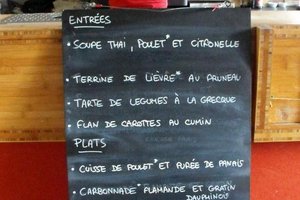 ENTRÉES
• SOUPE THAI, POULET* ET CITRONELLE
• TERRINE DE LIÈVRE* AU PRUNEAU
• TARTE DE LEGUMES À LA GRECQUE
• FLAN DE CAROTTES AU CUMIN
PLATS
• CUISSE DE POULET* ET PURÉE DE PANAIS
• CARBONNADE* FLAMANDE ET GRATIN
DAUPHINOIS